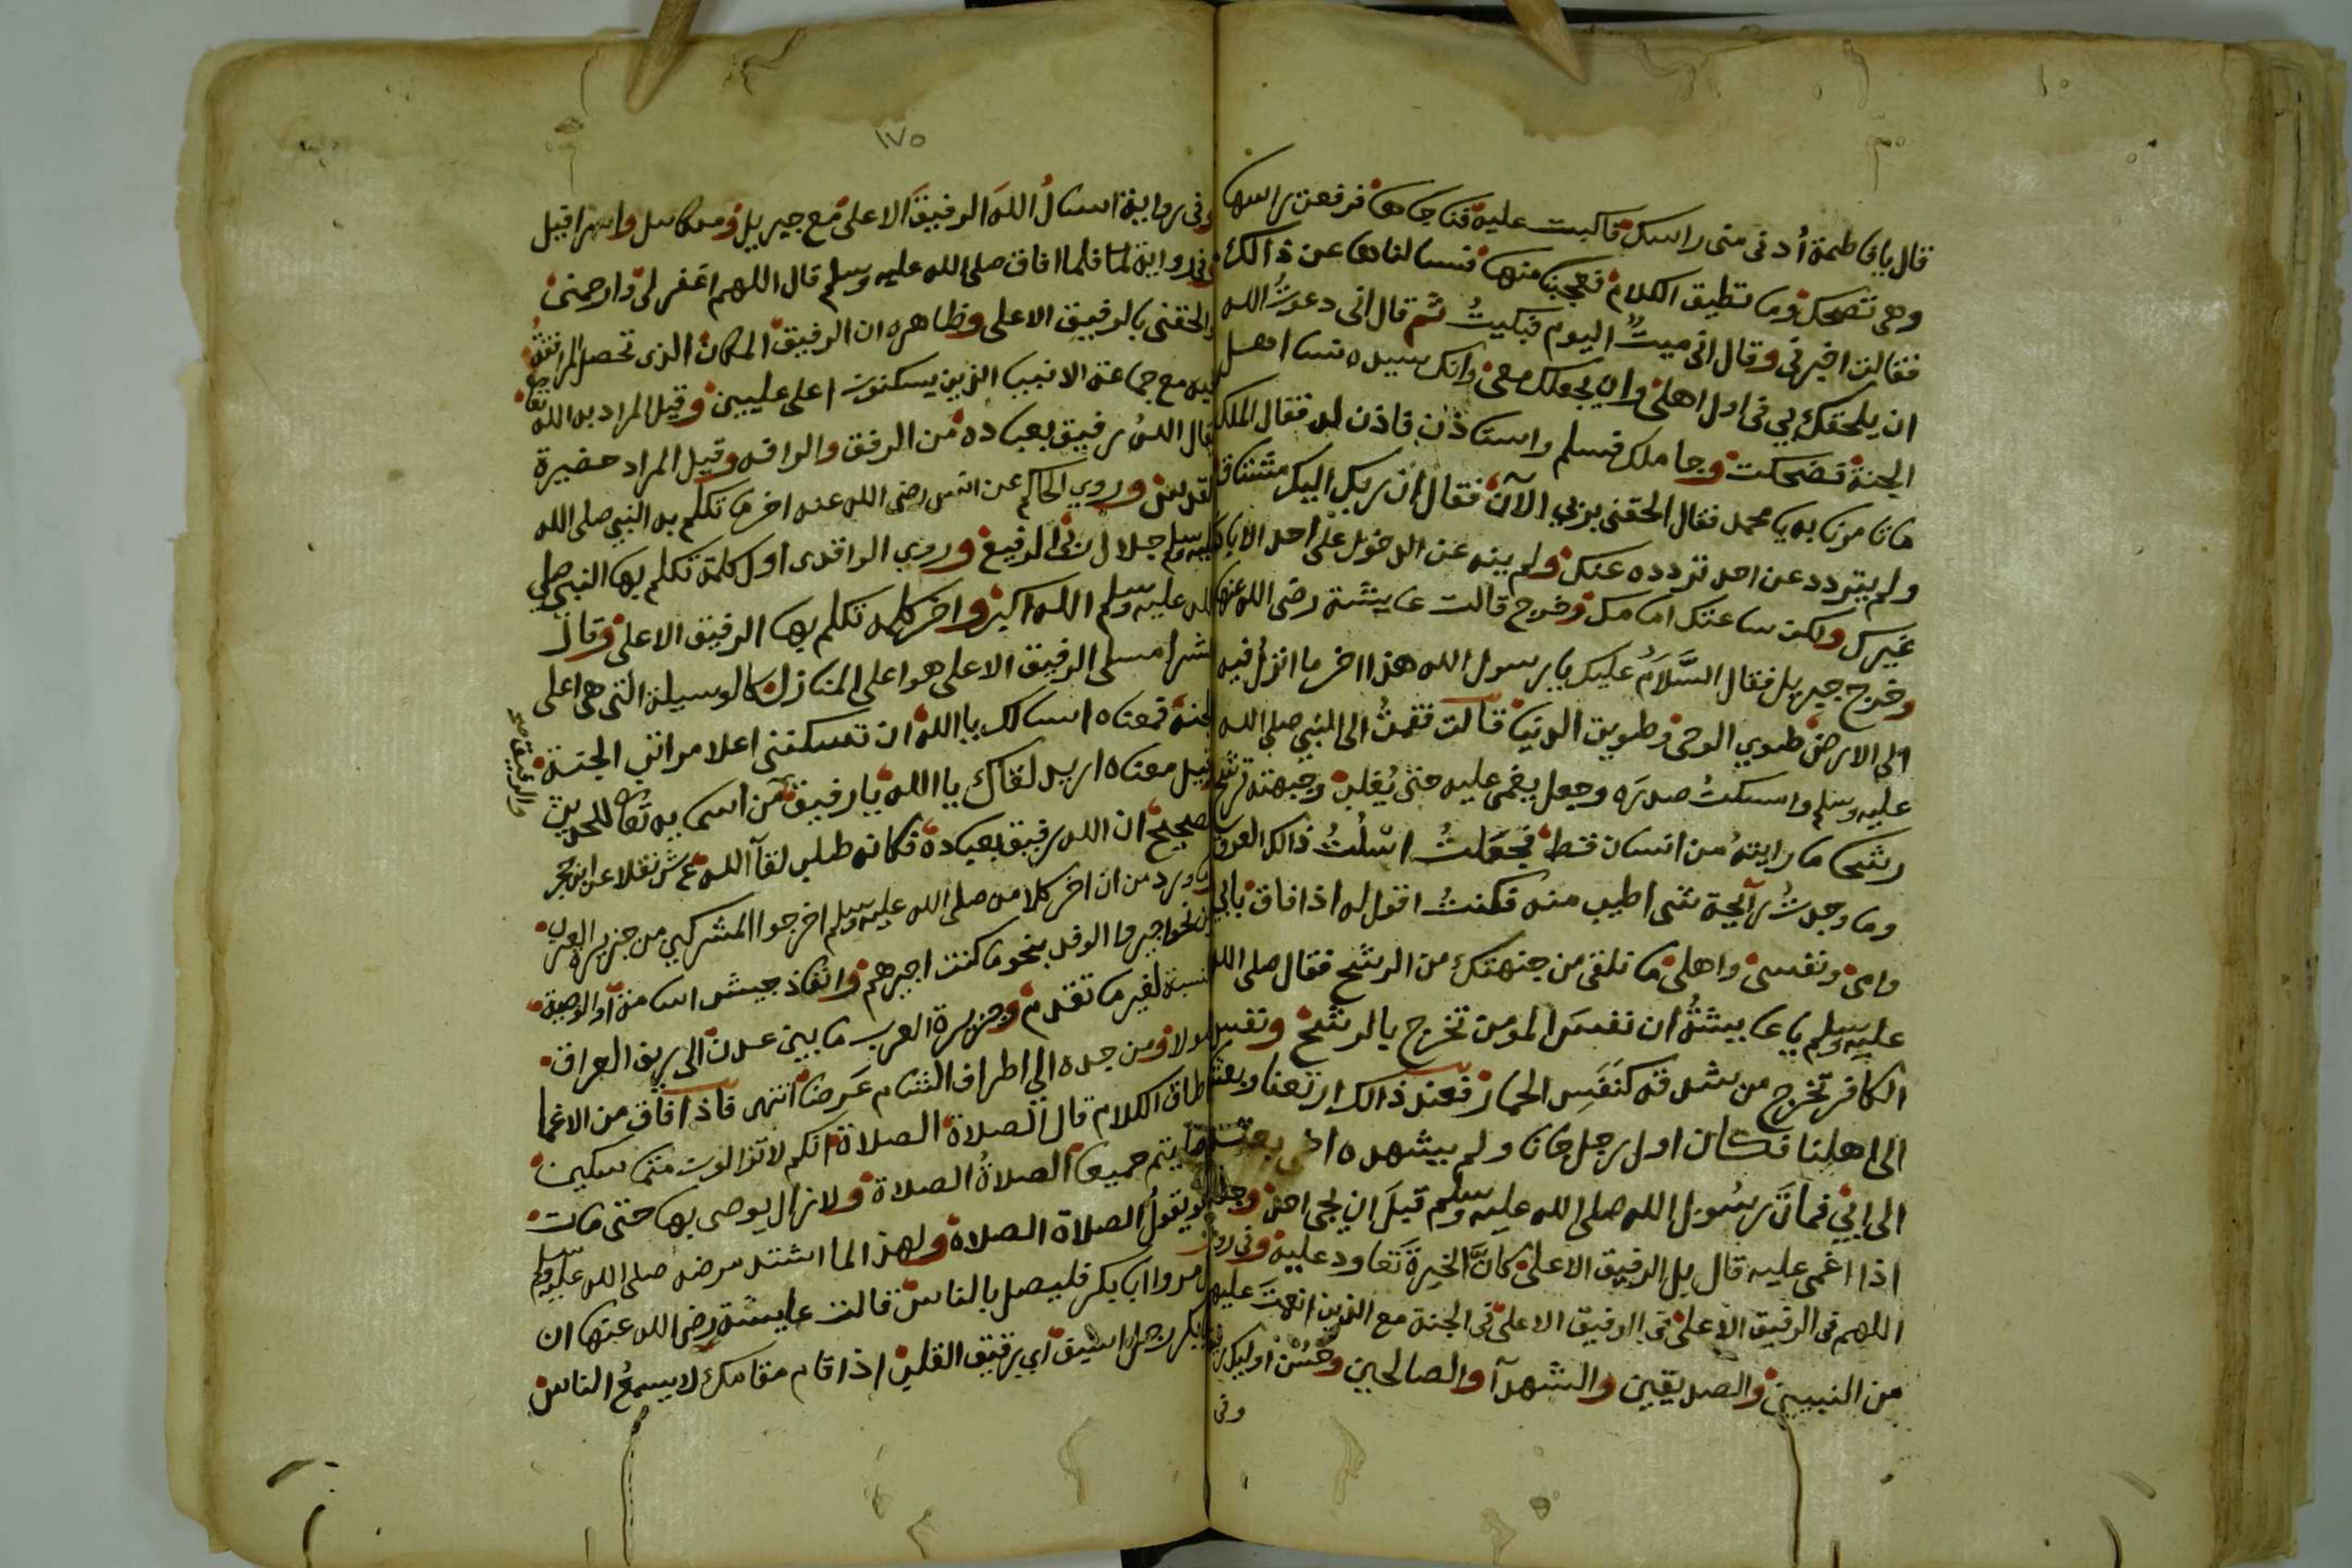 قال يا فاطمة أدني مني راسك فاكبت عليه فناجاها فرفعت راسها
وهي تضحك وما تطيق الكلام فعجبنا منها فسالناها عن ذالك
فقالت اخبرني وقال اني ميتٌ اليوم فبكيتُ ثم قال اني دعوتُ الله
ان يلحقك بي في اول اهلي وان يجعلك معي وانك سيدة نسا اهل
الجنة فضحكت وجا ملك فسلم واستاذن فاذن له فقال الملك
ما تامرنا به يا محمد فقال الحقني بربي الآن فقال ان ربك اليك مشتاق
ولم يتردد عن احد تردده عنك ولم ينه عن الدخول على احد الا
غيرك ولكن ساعتك امامك وخرج قالت عايشة رضي الله عنها
وخرج جبريل فقال السَّلَامُ عليك يا رسول الله هذا اخر ما انزل فيه
الى الارض طوي الوحي وطويت الدنيا قالت فقمتُ الى النبي صلى الله
عليه وسلم واسكتُ صدره وجعل يغمى عليه حتى يُغلب وجبهته ترشح
رشحا ما رايتهُ من انسان قط فجعلتُ اسْلُتُ ذالك العرق
وما وجدتُ رآيحة شي اطيب منه فكنتُ اقول له اذا افاق بابي
وامي ونفسي واهلي ما تلقى من جبهتك من الرشح فقال صلى الله
عليه وسلم يا عايشةُ ان نفسَ المومن تخرج بالرشح ونفس
الكافر تخرج من شدقه كنَفَسِ الحمار فعند ذالك ارتعنا وبعثنا
الى اهلنا فكان اول رجل جانا ولم يشهده اخي بعثته
الى ابي فماتَ رسُول الله صلى الله عليه وسلم قبلَ ان يجي احد وجعل
اذا اغمي عليه قال بل الرفيق الاعلى كانَّ الخِيرةَ تَعاود عليه وفي رواية
اللهم في الرفيق الاعلى في الرفيق الاعلى في الجنة مع الذين انعمتَ عليهم
من النبيين والصديقين والشهدآ والصالحين وحَسُنَ اوليك رفيقا
وفي
١٧٥
وفي رواية اسالُ اللهَ الرفيقَ الاعلى مع جبريل وميكاييل واسرافيل
وفي رواية لما فلما افاق صلى الله عليه وسلم قال اللهم اغفر لي وارحمني
والحقني بالرفيق الاعلى وظاهره ان الرفيق المكان الذي تحصل المرافقةُ
فيه مع جماعة الانبيا الذين يسكنون اعلى عليين وقيل المراد به الله تعا
يقال اللهُ رفيق بعباده من الرفق والرافه وقيل المراد حضيرة
القدس وروي الحاكم عن انس رضي الله عنه اخر ما تكلم به النبي صلى الله
عليه وسلم جلال ربي الرفيع وروي الواقدى اول كلمة تكلم بها النبي صلى
الله عليه وسلم الله اكبر واخر كلمه تكلم بها الرفيق الاعلى وقال
الرفيق الاعلى هو اعلى المنازل كالوسيلة التي هي اعلى
الجنة فمعناه اسالك يا الله ان تسكنني اعلا مراتب الجنة
وقيل معناه اريد لقاك يا الله يا رفيق من اسمايه تعا للحديث
الصحيح ان الله رفيق بعباده فكانه طلب لقآ الله ع ش نقلا عن ابن حجر
وما ورد من ان اخر كلامه صلى الله عليه وسلم اخرجوا المشركين من جزيرة العرب
من نحو اجيروا الوفد بنحو ما كنت اجيرهم وانفاذ جيش اسامة او الوصية
بالنسبة لغير ما تقدم وجزيرة العرب ما بين عدن الى ريف العراق
طولا ومن جده الي اطراف الشام عَرضا انتهى فاذا افاق من الاغما
واطاق الكلام قال الصلاة الصلاة انكم لا تزالون متماسكين
ما صليتم جميعا الصلاةُ الصلاة ولا زال يوصى بها حتى مات
وهو يقولُ الصلاة الصلاة ولهذا لما اشتد مرضه صلى الله عليه وسلم
قال مروا ابا بكر فليصل بالناس قالت عايشة رضي الله عنها ان
ابا بكر رجل اسيف اي رقيق القلب اذا قام مقامك لا يسمعُ الناس